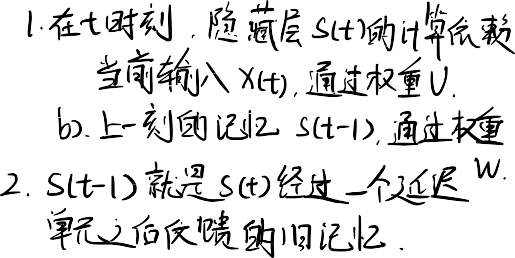 1. 在t时刻，隐藏层 S(t)的计算依赖
当前输入 X(t), 通过权重U.
b). 上一刻的记忆 S(t-1), 通过权重
W.
2. S(t-1) 就是 S(t) 经过一个延迟
单元之后反馈的旧记忆.